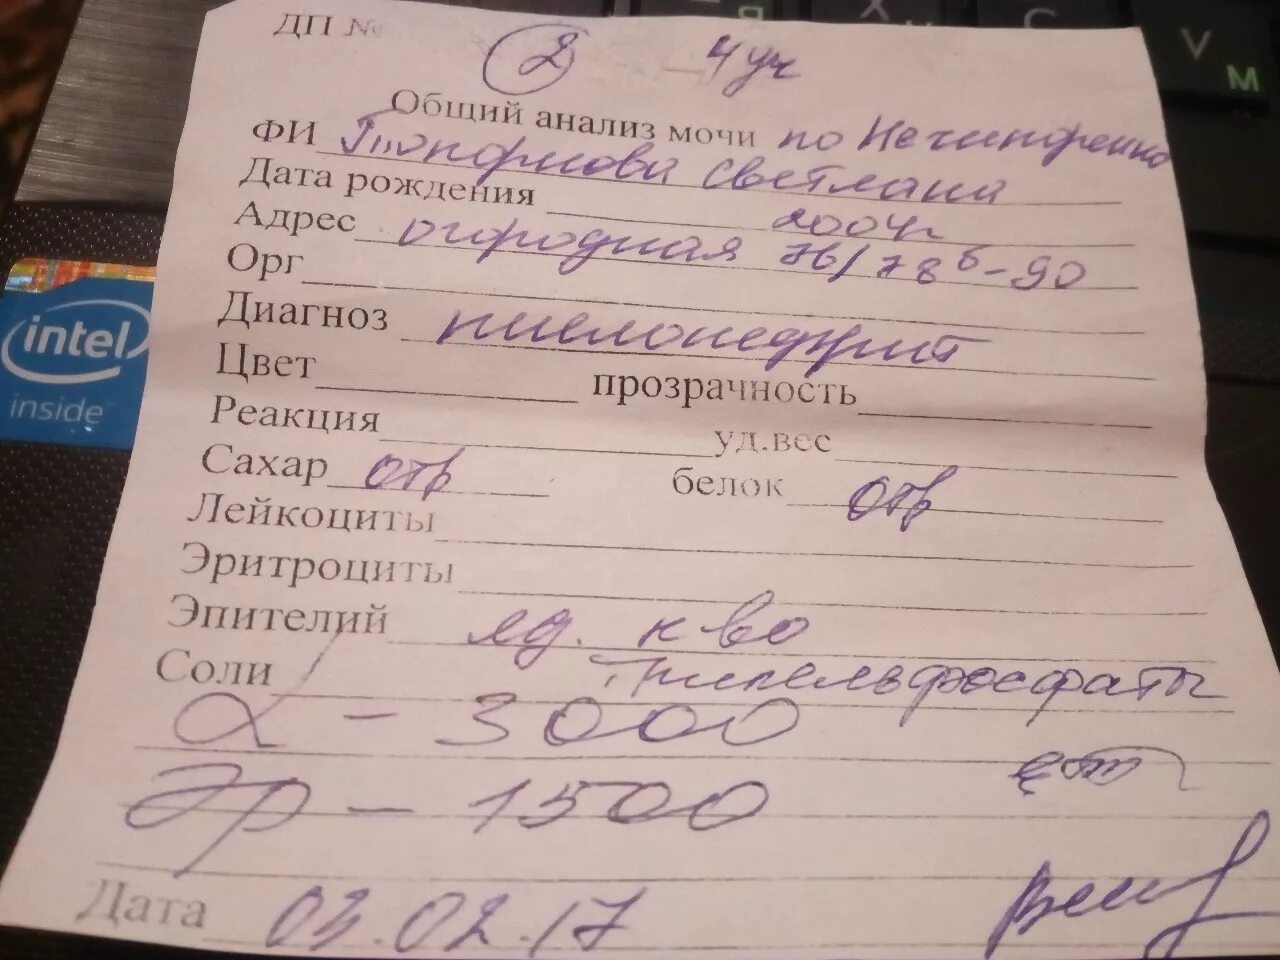 ДП №
2 - 4 уч
Общий анализ мочи по Нечипоренко
ФИ Топоркова Светлана
Дата рождения 2004г
Адрес огородная 76/78 б-90
Орг
Диагноз пиелонефрит
Цвет прозрачность
Реакция уд.вес
Сахар отр белок отр
Лейкоциты
Эритроциты
Эпителий ед. к-во
Соли Трипельфосфаты
L - 3000
Эр - 1500
Дата 03.02.17
intel
inside
V
М